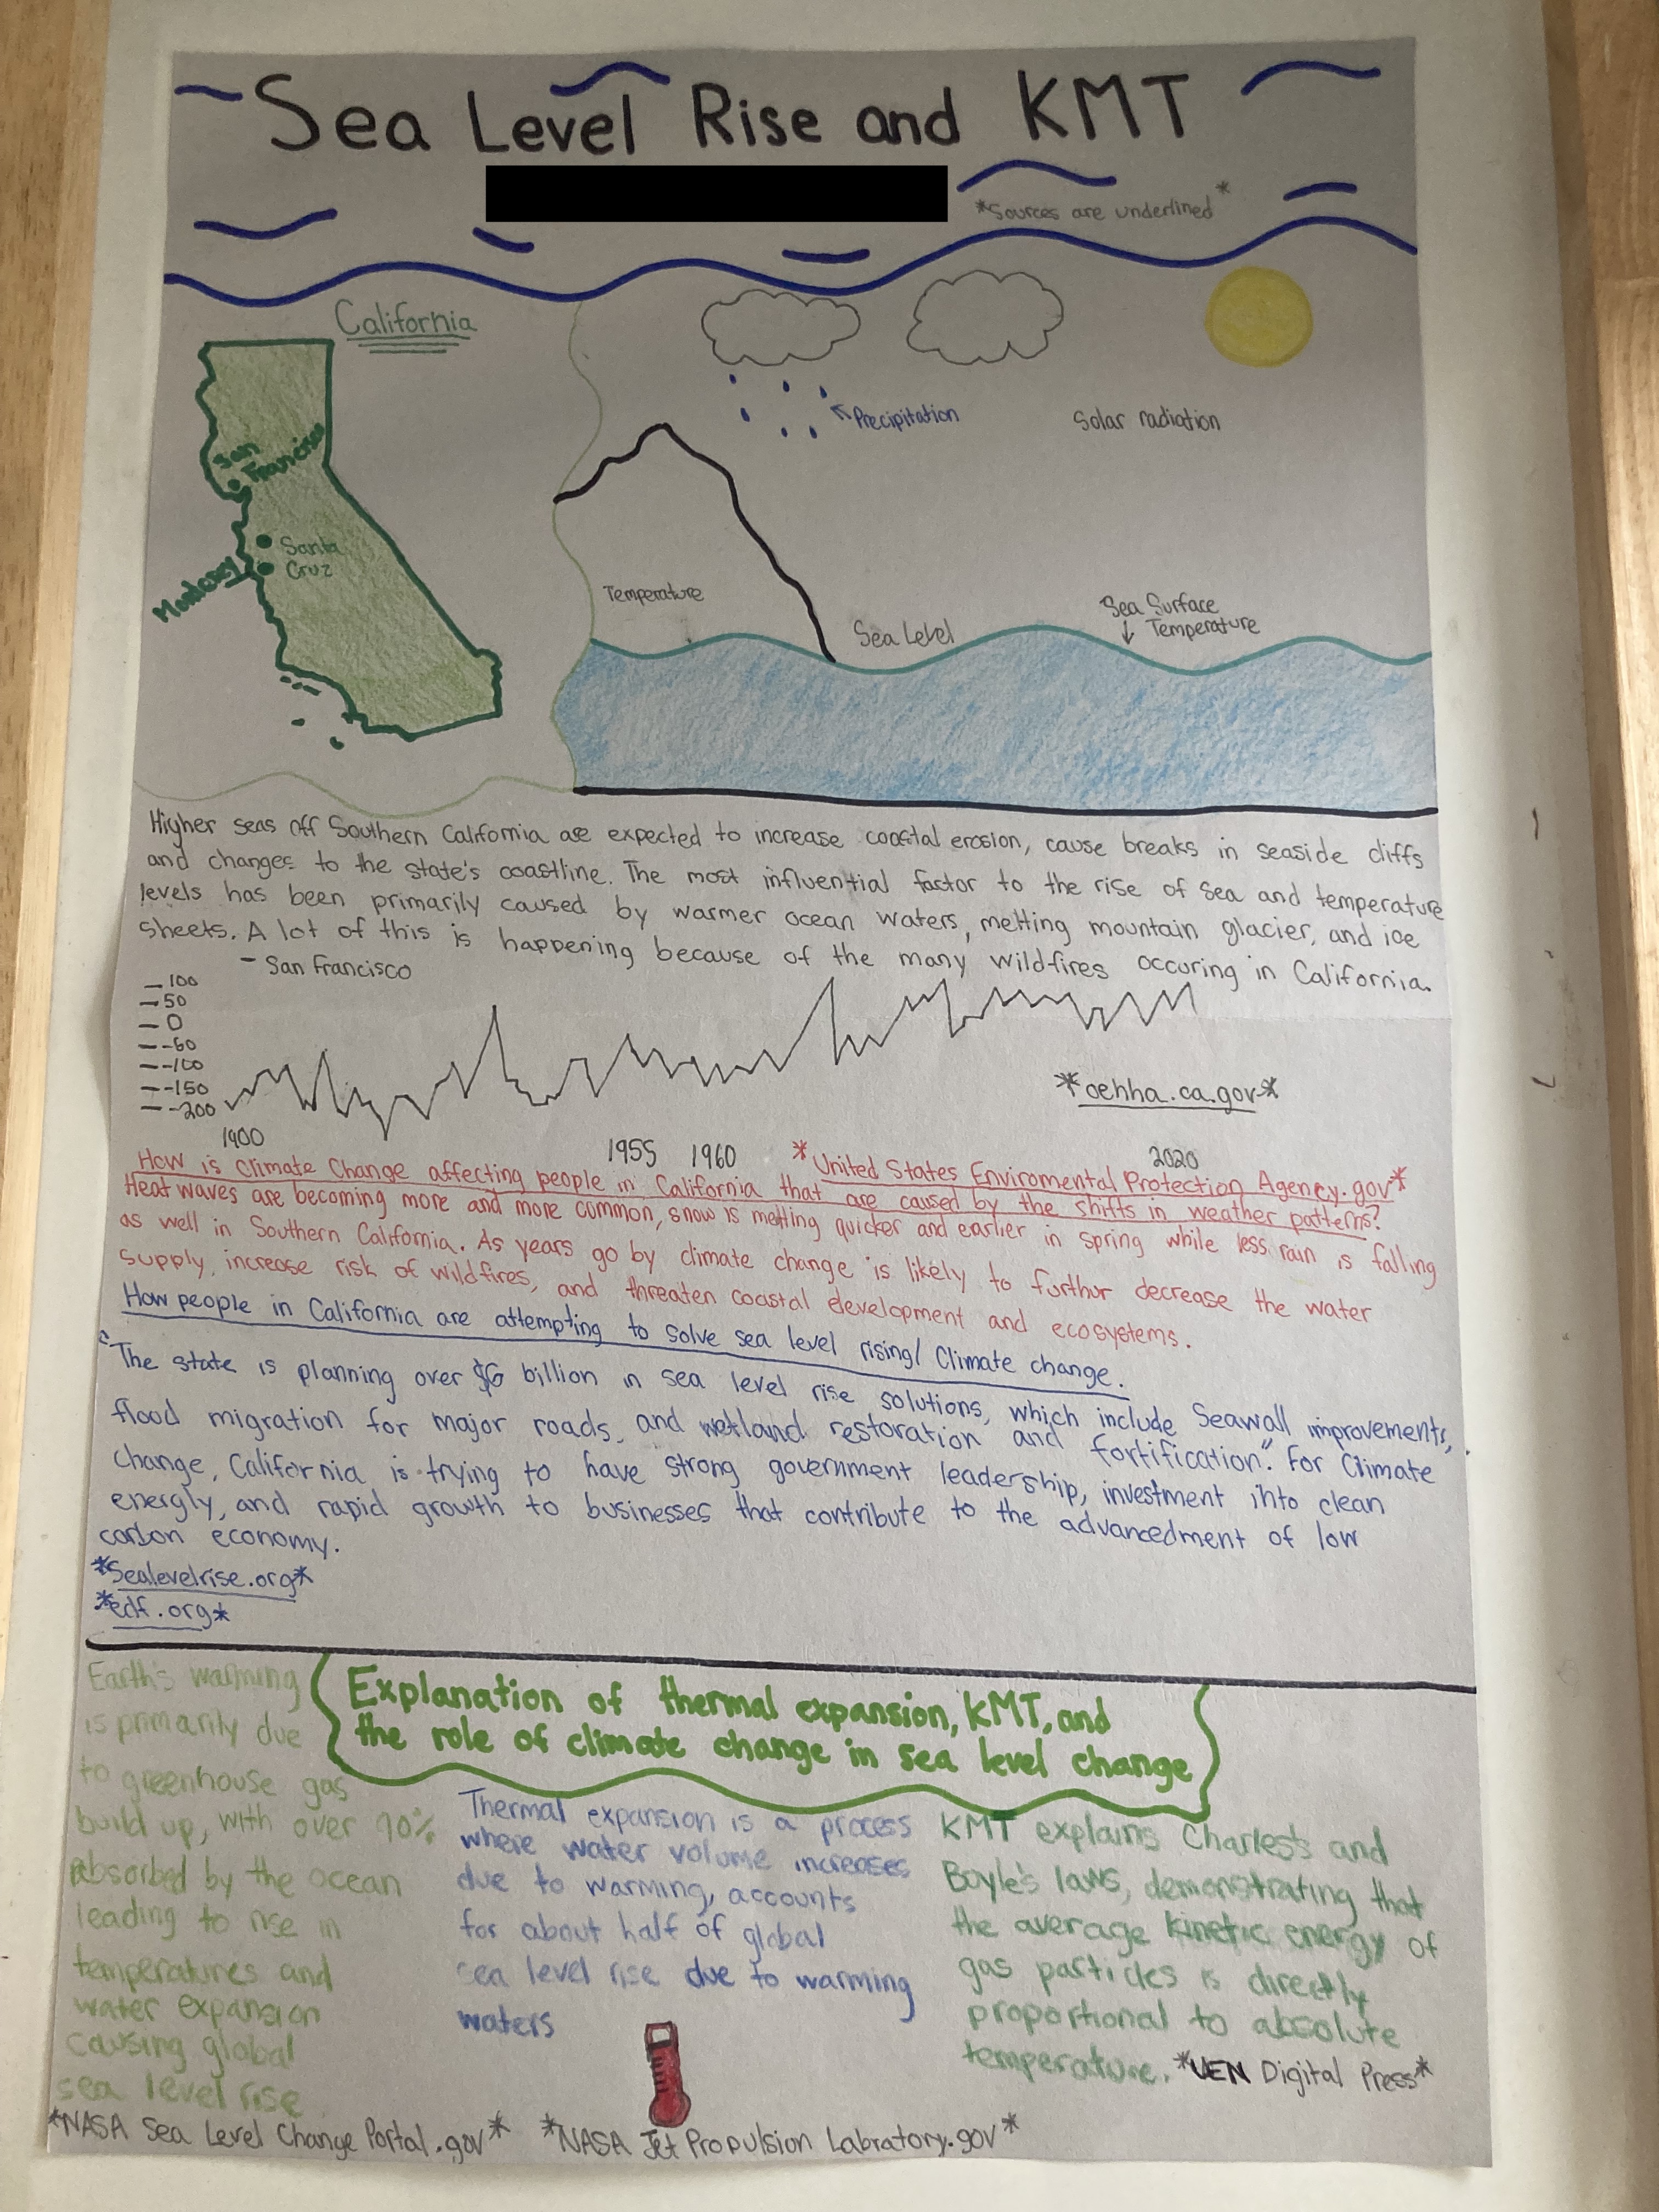 Sea Level Rise and KMT
*Sources are underlined*
California
San Francisco
Santa Cruz
Monterey
Precipitation
Solar radiation
Temperature
Sea Level
Sea Surface
Temperature
Higher seas off Southern California are expected to increase coastal erosion, cause breaks in seaside cliffs
and changes to the state's coastline. The most influential factor to the rise of sea and temperature
levels has been primarily caused by warmer ocean waters, melting mountain glacier, and ice
sheets. A lot of this is happening because of the many wildfires occuring in California.
- San Francisco
100
50
0
-60
-100
-150
-200
1900
1955
1960
2020
*oehha.ca.gov*
*United States Enviromental Protection Agency.gov*
How is Climate Change affecting people in California that are caused by the shifts in weather patterns?
Heat waves are becoming more and more common, snow is melting quicker and earlier in spring while less rain is falling
as well in Southern California. As years go by climate change is likely to furthur decrease the water
supply, increase risk of wildfires, and threaten coastal development and ecosystems.
How people in California are attempting to solve sea level rising/ Climate change.
"The state is planning over $6 billion in sea level rise solutions, which include Seawall improvements,
flood migration for major roads, and wetland restoration and fortification". For Climate
change, California is trying to have strong government leadership, investment into clean
energly, and rapid growth to businesses that contribute to the advancedment of low
carbon economy.
*Sealevelrise.org*
*edf.org*
Explanation of thermal expansion, KMT, and
the role of climate change in sea level change
Earth's warming
is primarily due
to greenhouse gas
build up, with over 90%
absorbed by the ocean
leading to rise in
temperatures and
water expansion
causing global
sea level rise
Thermal expansion is a process
where water volume increases
due to warming, accounts
for about half of global
sea level rise due to warming
waters
KMT explains Charles's and
Boyle's laws, demonstrating that
the average kinetic energy of
gas particles is directly
proportional to absolute
temperature. *UEN Digital Press*
*NASA Sea Level Change Portal.gov* *NASA Jet Propulsion Labratory.gov*